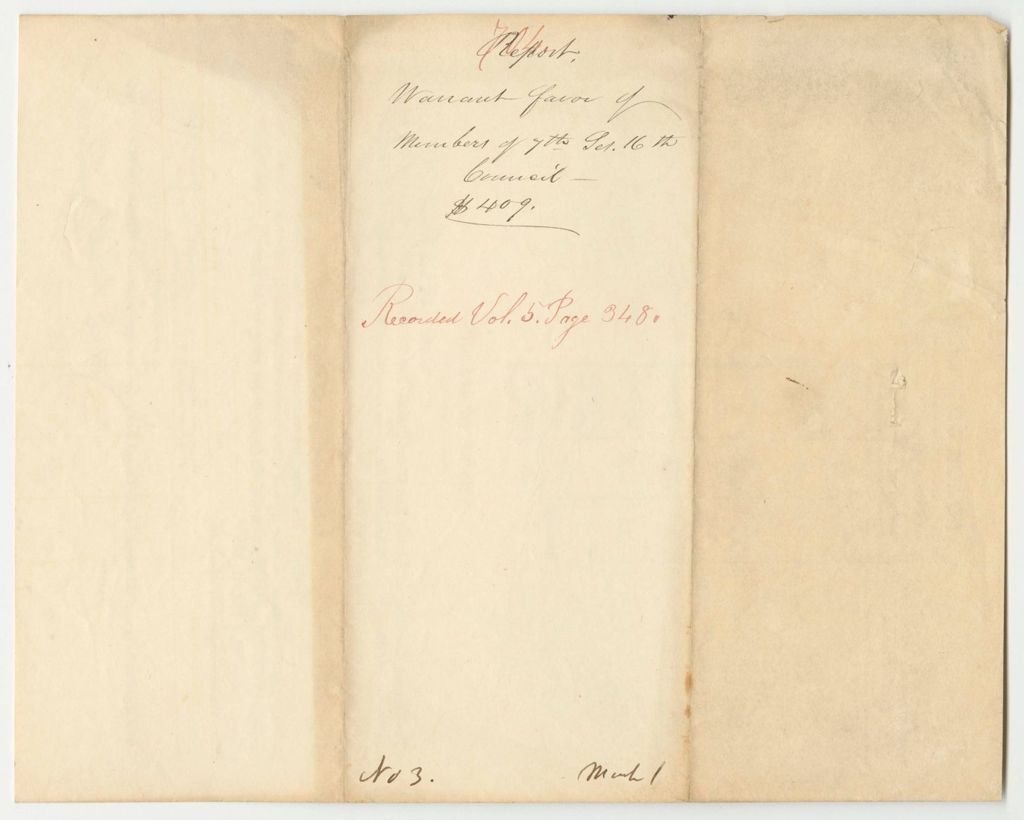 Report.
Warrant favor of
Members of 7th Ses. 16 th
Council —
$409.
Recorded Vol. 5. Page 348.
No 3.